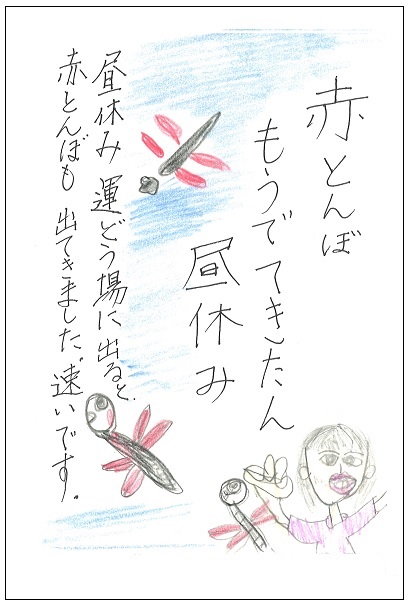 赤とんぼ
もうでてきたん
昼休み
昼休み 運どう場に出ると、
赤とんぼも 出てきました。速いです。